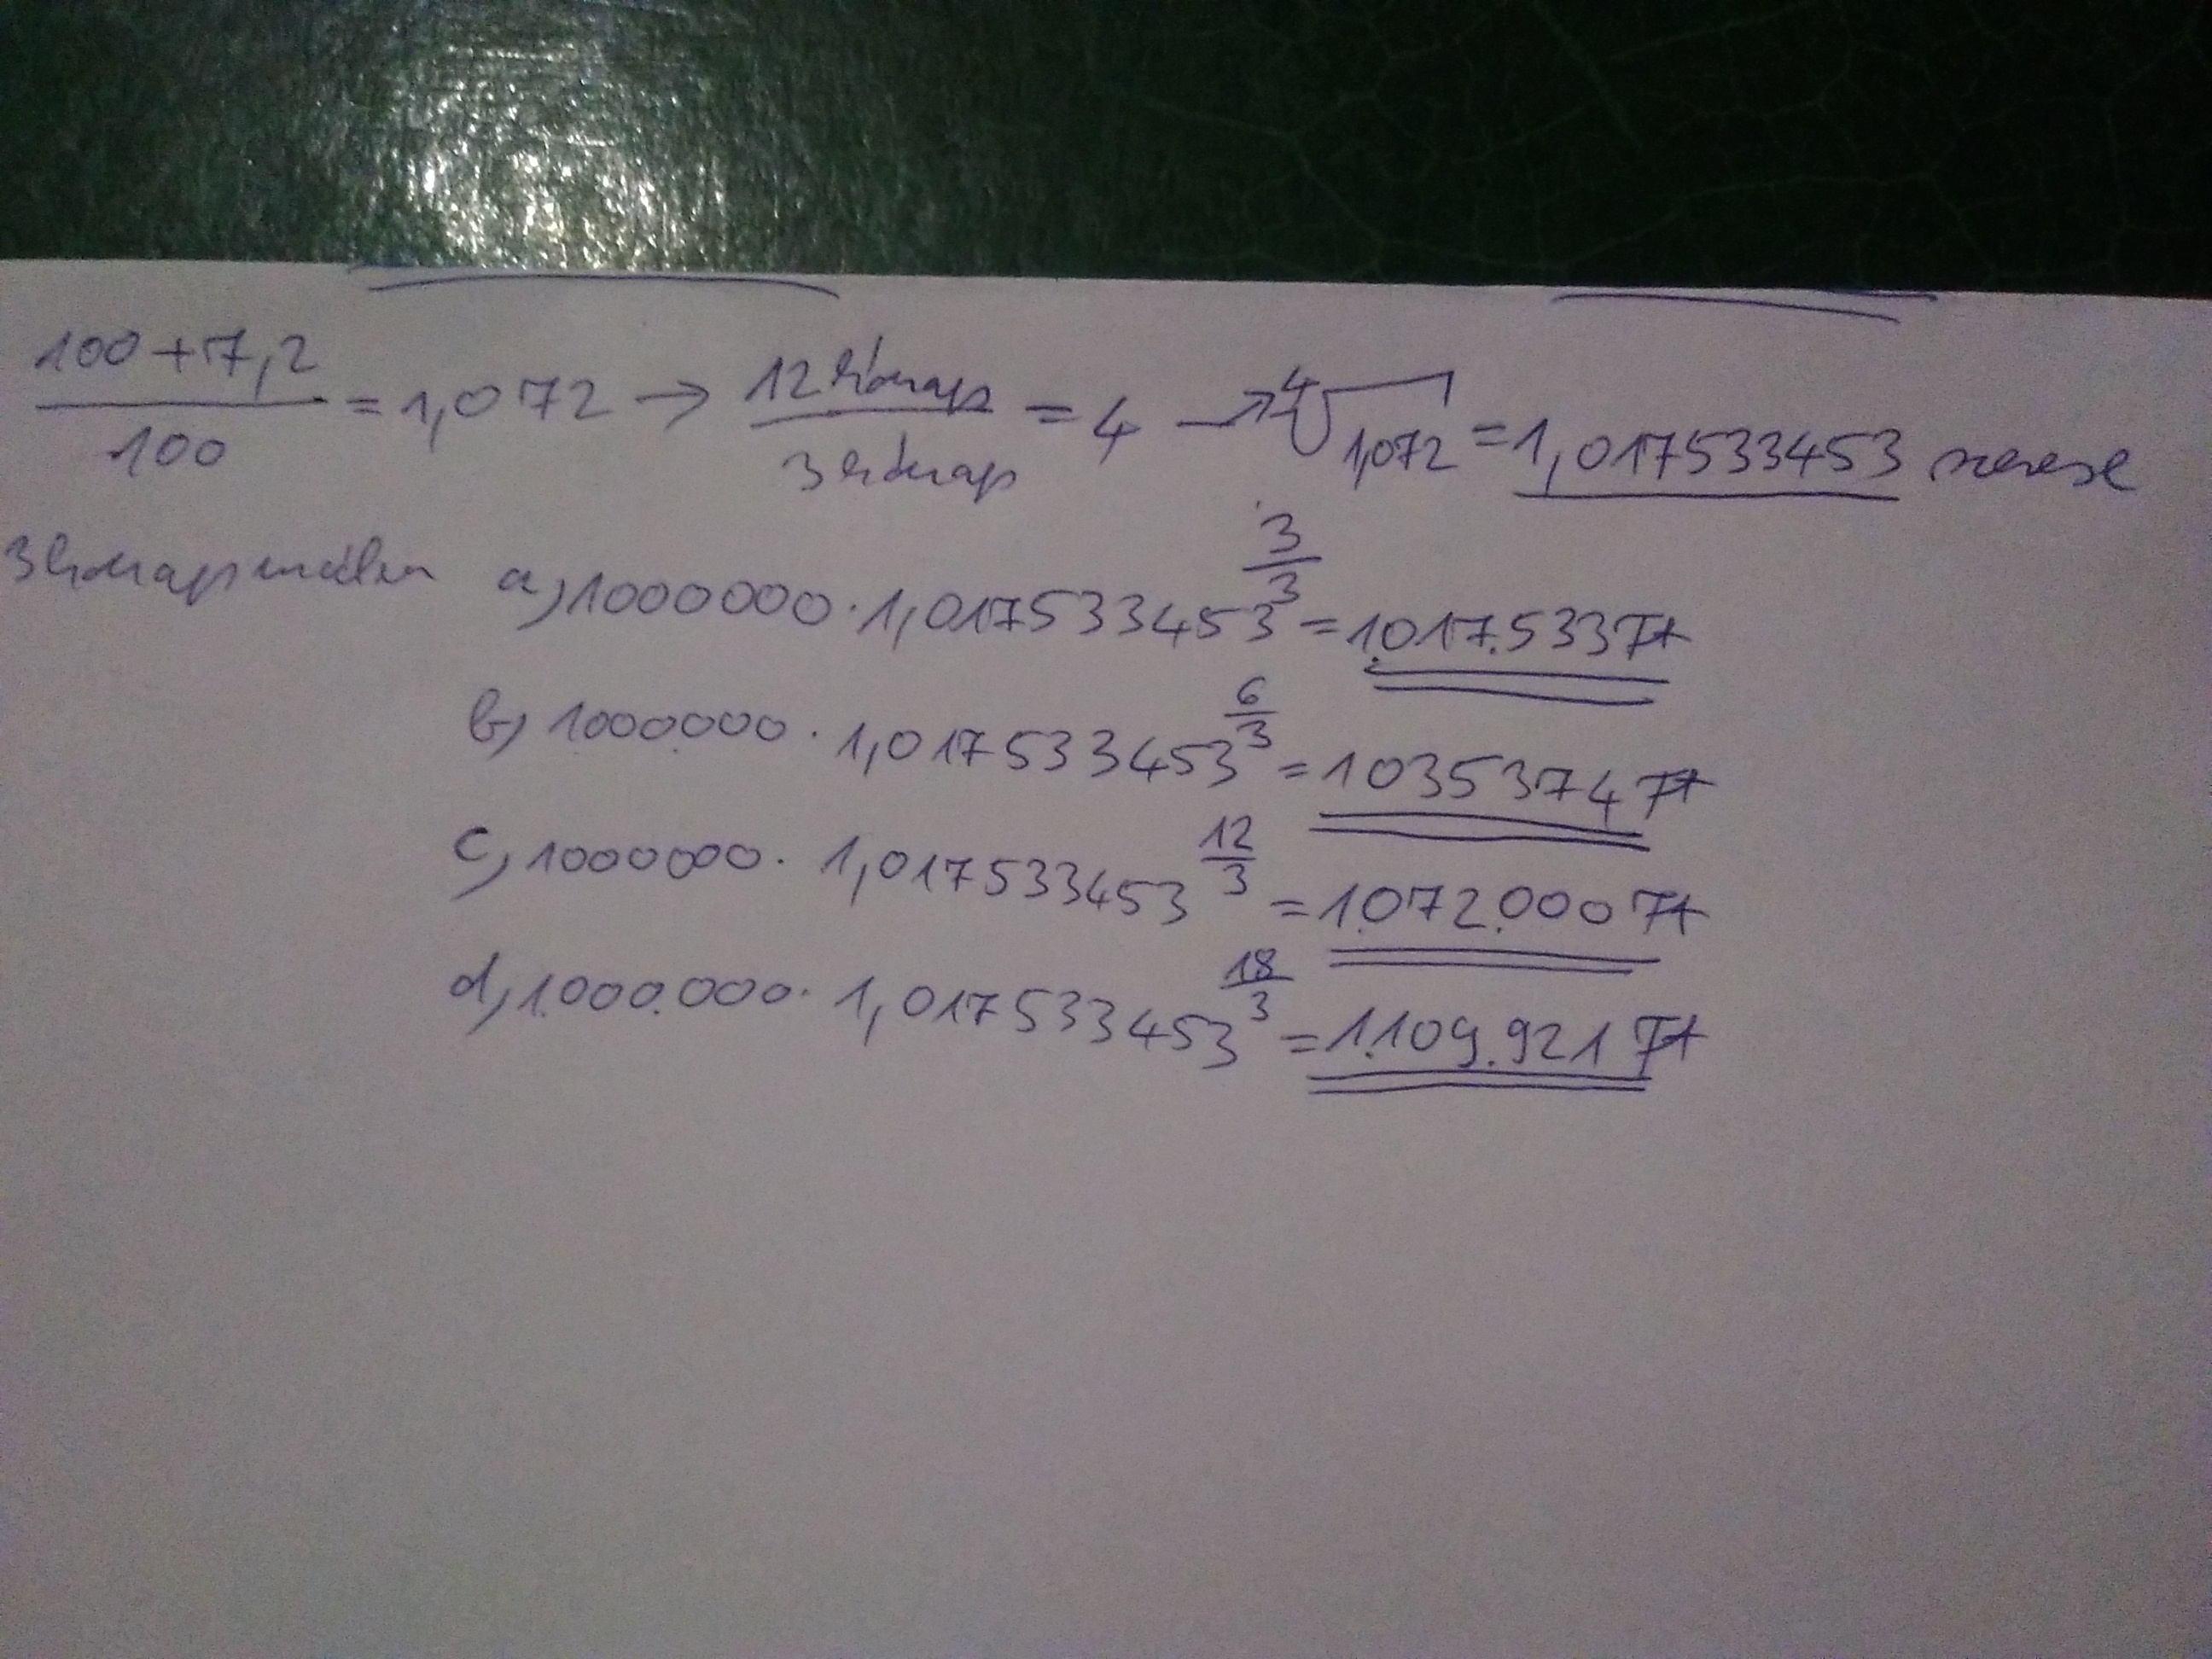 100+7,2
/100 = 1,072 → 12 hónap/3 hónap = 4 → ⁴√1,072 = 1,017533453 szerese
3 hónap múlva a) 1000000 · 1,017533453^(3/3) = 1.017.533 Ft
b) 1000.000 · 1,017533453^(6/3) = 1035374 Ft
c) 1000000 · 1,017533453^(12/3) = 1.072.000 Ft
d) 1.000.000 · 1,017533453^(18/3) = 1.109.921 Ft